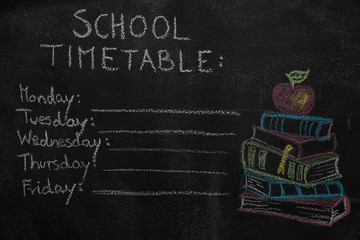 SCHOOL
TIMETABLE:
Monday:
Tuesday:
Wednesday:
Thursday:
Friday: